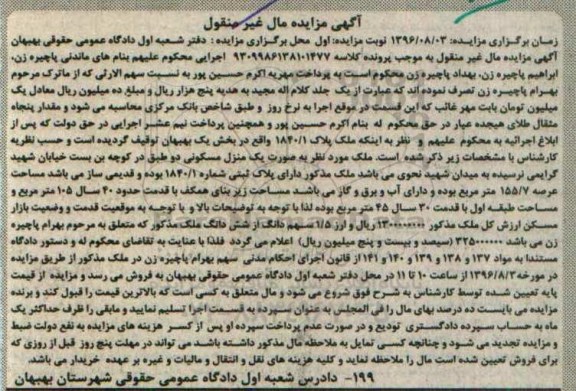 آگهی مزایده مال غیر منقول
زمان برگزاری مزایده: ۱۳۹۶/۰۸/۰۳ نوبت مزایده: اول محل برگزاری مزایده : دفتر شعبه اول دادگاه عمومی حقوقی بهبهان
آگهی مزایده مال غیر منقول به موجب پرونده کلاسه ۹۳۰۹۹۸۶۱۳۸۱۰۱۴۷۷ اجرایی محکوم علیهم بنام های ماندنی پاچیره زن،
ابراهیم پاچیره زن، بهداد پاچیره زن محکوم است به پرداخت مهریه اکرم حسین پور به نسبت سهم الارثی که از ماترک مرحوم
بهرام پاچیره زن تصرف نموده اند که عبارت از یک جلد کلام اله مجید به هدیه پنج هزار ریال و مبلغ ده میلیون ریال معادل یک
میلیون تومان بابت مهر غائب که این قسمت در موقع اجرا به نرخ روز و طبق شاخص بانک مرکزی محاسبه می شود و مقدار پنجاه
مثقال طلای هیجده عیار در حق محکوم له بنام اکرم حسین پور و همچنین پرداخت نیم عشر اجرایی در حق دولت که پس از
ابلاغ اجرائیه به محکوم علیهم و نظر به اینکه ملک پلاک ۱۸۴۰/۱ واقع در بخش یک بهبهان توقیف گردیده است و حسب نظریه
کارشناس با مشخصات زیر ذکر شده است. ملک مورد نظر به صورت یک منزل مسکونی دو طبق در کوچه بن بست خیابان شهید
گرامی نرسیده به میدان شهید نحوی می باشد ملک مذکور دارای پلاک ثبتی شماره ۱۸۴۰/۱ بوده و قدیمی ساز می باشد مساحت
عرصه ۱۵۵/۷ متر مربع بوده و دارای آب و برق و گاز می باشد مساحت زیر بنای همکف با قدمت حدود ۴۰ سال ۱۰۵ متر مربع و
مساحت طبقه اول با قدمت ۳۰ سال ۴۵ متر مربع بوده لذا با توجه به توضیحات بالا و با توجه به موقعیت قدمت و وضعیت بازار
مسکن ارزش کل ملک مذکور ۱۳۰۰۰۰۰۰۰۰ ریال و ارز ۱/۵ سهم دانگ از شش دانگ ملک مذکور که متعلق به مرحوم بهرام پاچیره
زن می باشد ۳۲۵۰۰۰۰۰۰ (سیصد و بیست و پنج میلیون ریال) اعلام می گردد فلذا با عنایت به تقاضای محکوم له و دستور دادگاه
مستندا به مواد ۱۳۷ و ۱۳۸ و ۱۳۹ و ۱۴۰ و ۱۴۱ از قانون اجرای احکام مدنی سهم بهرام پاچیره زن در ملک مذکور از طریق مزایده
در مورخه ۱۳۹۶/۸/۳ از ساعت ۱۰ تا ۱۱ در محل دفتر شعبه اول دادگاه عمومی حقوقی بهبهان به فروش می رسد و مزایده از قیمت
پایه تعیین شده توسط کارشناس به شرح فوق شروع می شود و مال متعلق به کسی است که بالاترین قیمت را قبول کند و برنده
مزایده می بایست ده درصد بهای مال را فی المجلس به عنوان سپرده به قسمت اجرا تسلیم نمایید و مابقی را ظرف حداکثر یک
ماه به حساب سپرده دادگستری تودیع و در صورت عدم پرداخت سپرده او پس از کسر هزینه های مزایده به نفع دولت ضبط
و مزایده تجدید می شود و چنانچه کسی تمایل به ملاحظه مال مذکور داشته باشد می تواند در مهلت پنج روز قبل از روزی که
برای فروش تعیین شده است مال را ملاحظه نماید و کلیه هزینه های نقل و انتقال و مالیات و غیره بر عهده خریدار می باشد.
۱۹۹- دادرس شعبه اول دادگاه عمومی حقوقی شهرستان بهبهان